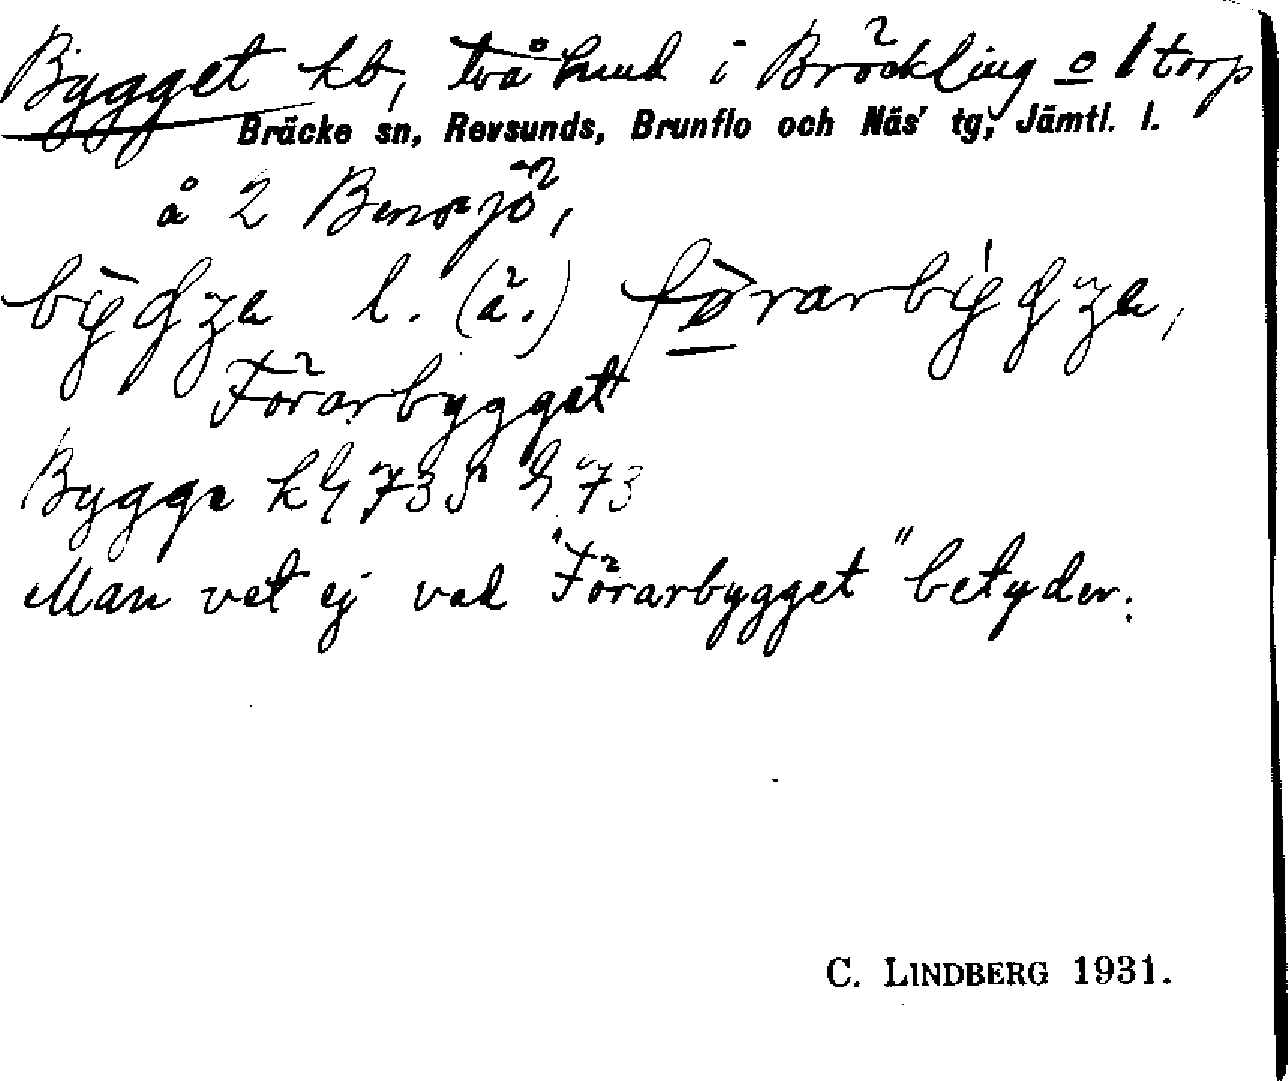 Bygget kb, två hmd i Bröckling o 1 torp
Bräcke sn, Revsunds, Brunflo och Näs' tg, Jämtl. l.
å 2 Bensjö,
l. (ä.)
Förarbygget
Bygge k 73 S 73
Man vet ej vad "Förarbygget" betyder.
C. LINDBERG 1931.